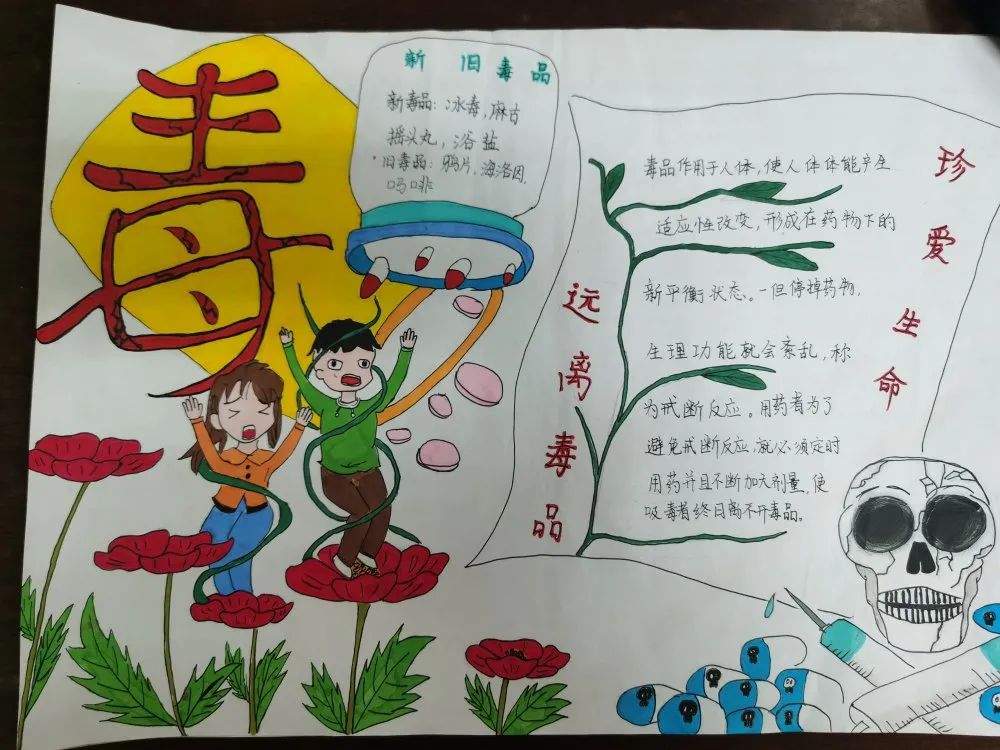 毒
新旧毒品
新毒品：冰毒，麻古
摇头丸，浴盐
旧毒品：鸦片，海洛因，
吗啡
远离毒品
毒品作用于人体，使人体体能产生
适应性改变，形成在药物下的
新平衡状态。一但停掉药物，
生理功能就会紊乱，称
为戒断反应。用药者为了
避免戒断反应，就必须定时
用药并且不断加大剂量，使
吸毒者终日离不开毒品。
珍爱生命